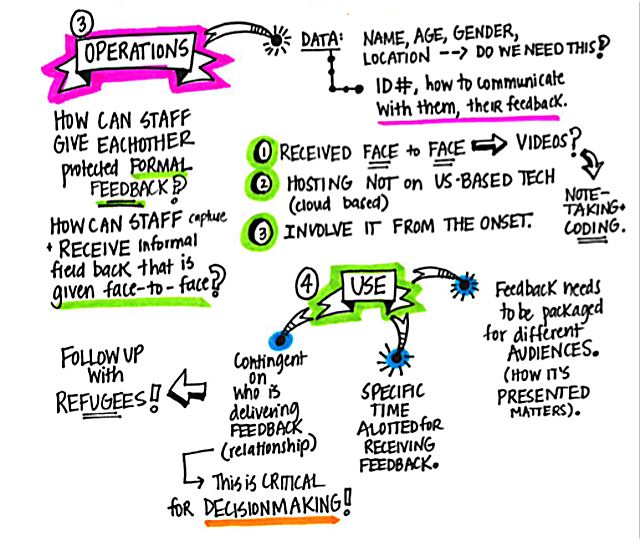 3
OPERATIONS
DATA: NAME, AGE, GENDER,
LOCATION --> DO WE NEED THIS?
ID#, how to communicate
with them, their feedback.
HOW CAN STAFF
GIVE EACHOTHER
protected FORMAL
FEEDBACK?
HOW CAN STAFF capture
+ RECEIVE informal
field back that is
given face-to-face?
1 RECEIVED FACE to FACE VIDEOS?
NOTE-
TAKING+
CODING.
2 HOSTING NOT on US-BASED TECH
(cloud based)
3 INVOLVE IT FROM THE ONSET.
4
USE
Contingent
on
who is
delivering
FEEDBACK
(relationship)
This is CRITICAL
for DECISIONMAKING!
FOLLOW UP
with
REFUGEES!
SPECIFIC
TIME
ALOTTED for
RECEIVING
FEEDBACK.
Feedback needs
to be packaged
for different
AUDIENCES.
(HOW IT'S
PRESENTED
MATTERS).